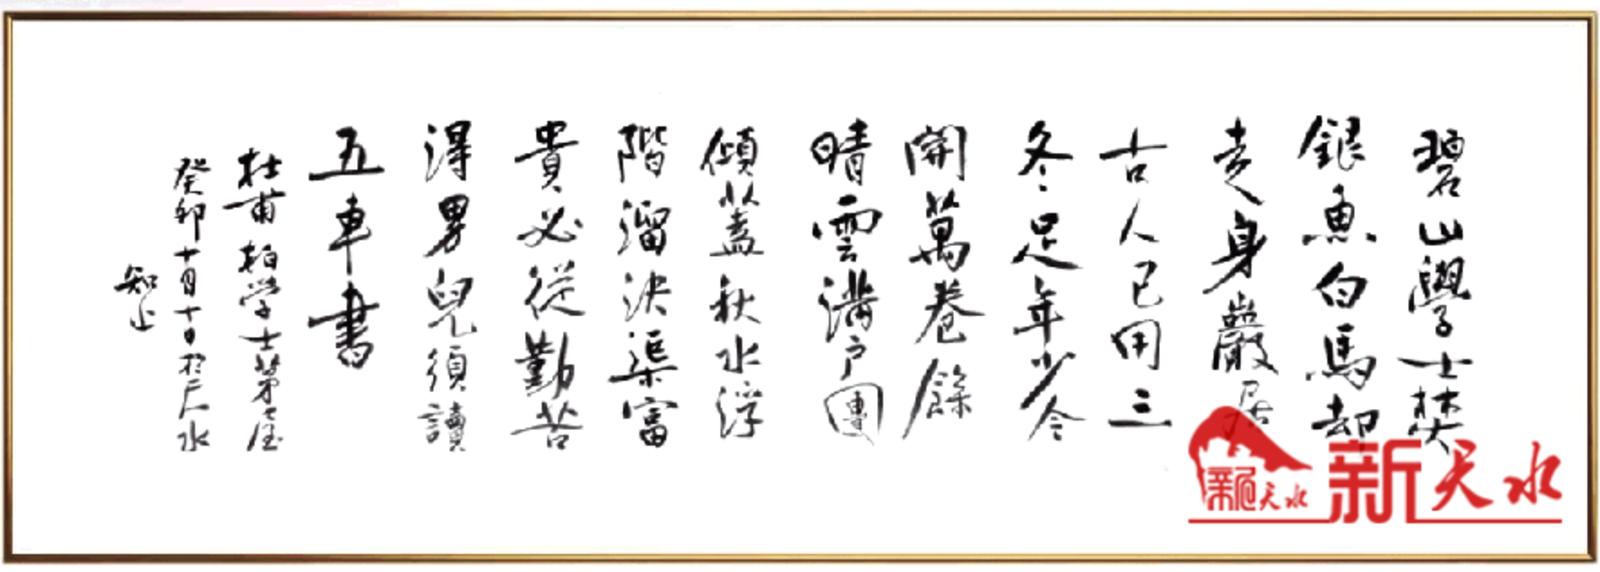 碧山學士焚
銀魚白馬却
走身巖居
古人已用三
冬足年少今
開萬卷餘
晴雲滿户團
傾蓋秋水浮
階溜決渠富
貴必從勤苦
得男兒須讀
五車書
杜甫柏學士茅屋
癸卯十月十日於天水
知止
新天水
新天水